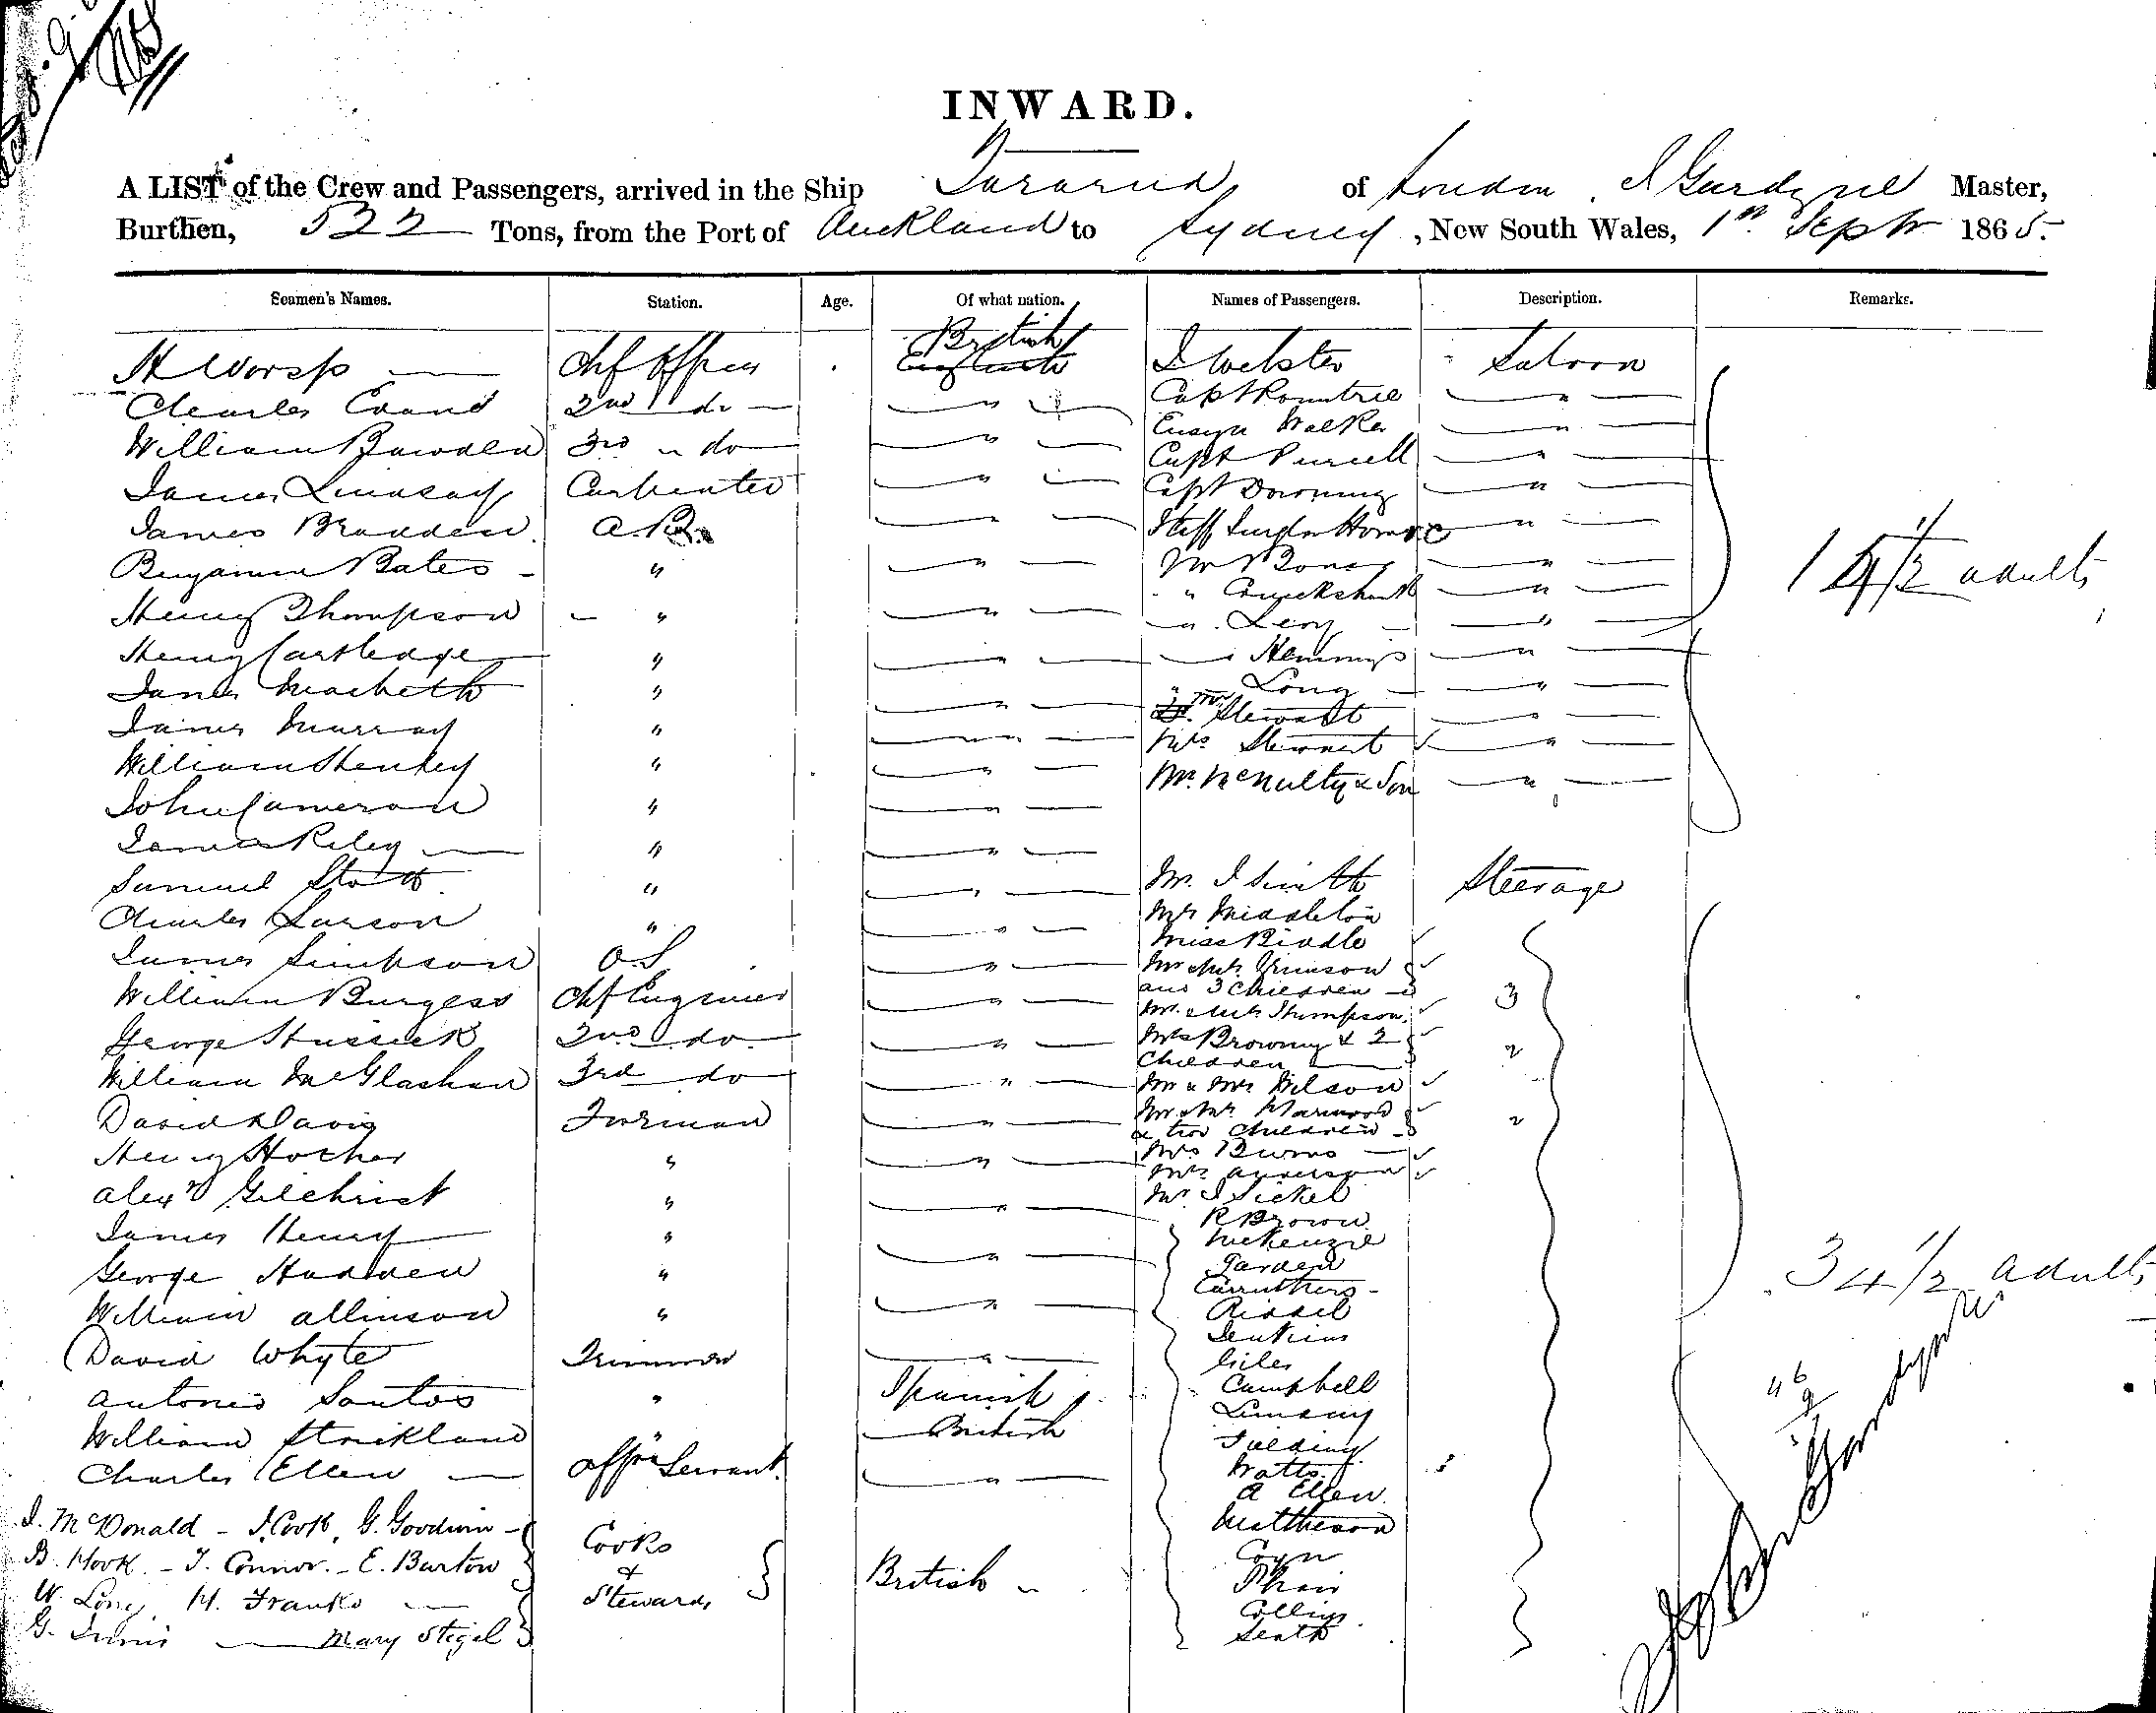 INWARD.
A LIST of the Crew and Passengers, arrived in the Ship Tararua of London, J Gardyne Master,
Burthen, 522 Tons, from the Port of Auckland to Sydney, New South Wales, 1st Septr 1865.
Seamen's Names. Station. Age. Of what nation. Names of Passengers. Description. Remarks.
British
H Worsp Chf Officer English J Webster Saloon
Charles Evans 2nd do " Capt Rountree "
William Bawden 3rd " do " Ensign Walker "
James Lindsay Carpenter " Capt Purcell "
" Capt Downing "
James Bradden A.B. " Staff Surgn Home VC "
Benjamin Bates " " Mr Jones "
" Cruickshank "
Henry Thompson " " " Levy "
Henry Cartledge " " " Hemmings "
14 1/2 adults
James Macbeth " " " Long "
Mr Stewart "
James Murray " " Mrs Stewart "
William Henley " " Mr McNulty & Son "
John Cameron " "
James Riley " "
Samuel Stott " " Mr J Smith Steerage
Charles Larson " " Mr Middleton
Miss Biddle
James Simpson O.S " Mr & Mrs Grimson
and 3 Children 3
William Burgess Chf Engineer " Mr & Mrs Thompson
George Hussick 2nd do " Mrs Browning & 2
Children 2
William McGlashan 3rd do " Mr & Mrs Wilson
David Davis Fireman " Mr & Mrs Harwood
& two Children 2
Henry " " Mrs Burns
Mrs Anderson
Alexr Gilchrist " " Mr J Sickel
R Brown
James Henry " " McKenzie
George Hadden " Garden
Carruthers
34 1/2 adults
William Allinson " " Riddel
Jenkins
David Whyte Trimmer " Giles
Antonio Santos " Spanish Campbell
Lindsay
William Strickland " British Fielding
Charles Ellen Offrs Servant " Watts
A Ellen
J. McDonald - J. Cook, G. Goodwin - Mattheson
B. Hook - T. Connor. - E. Burton Cooks Coyn
& British Phair
W. Long H. Franks Stewards Collins
G. Innis Mary Stegel Seath
J Gardyne